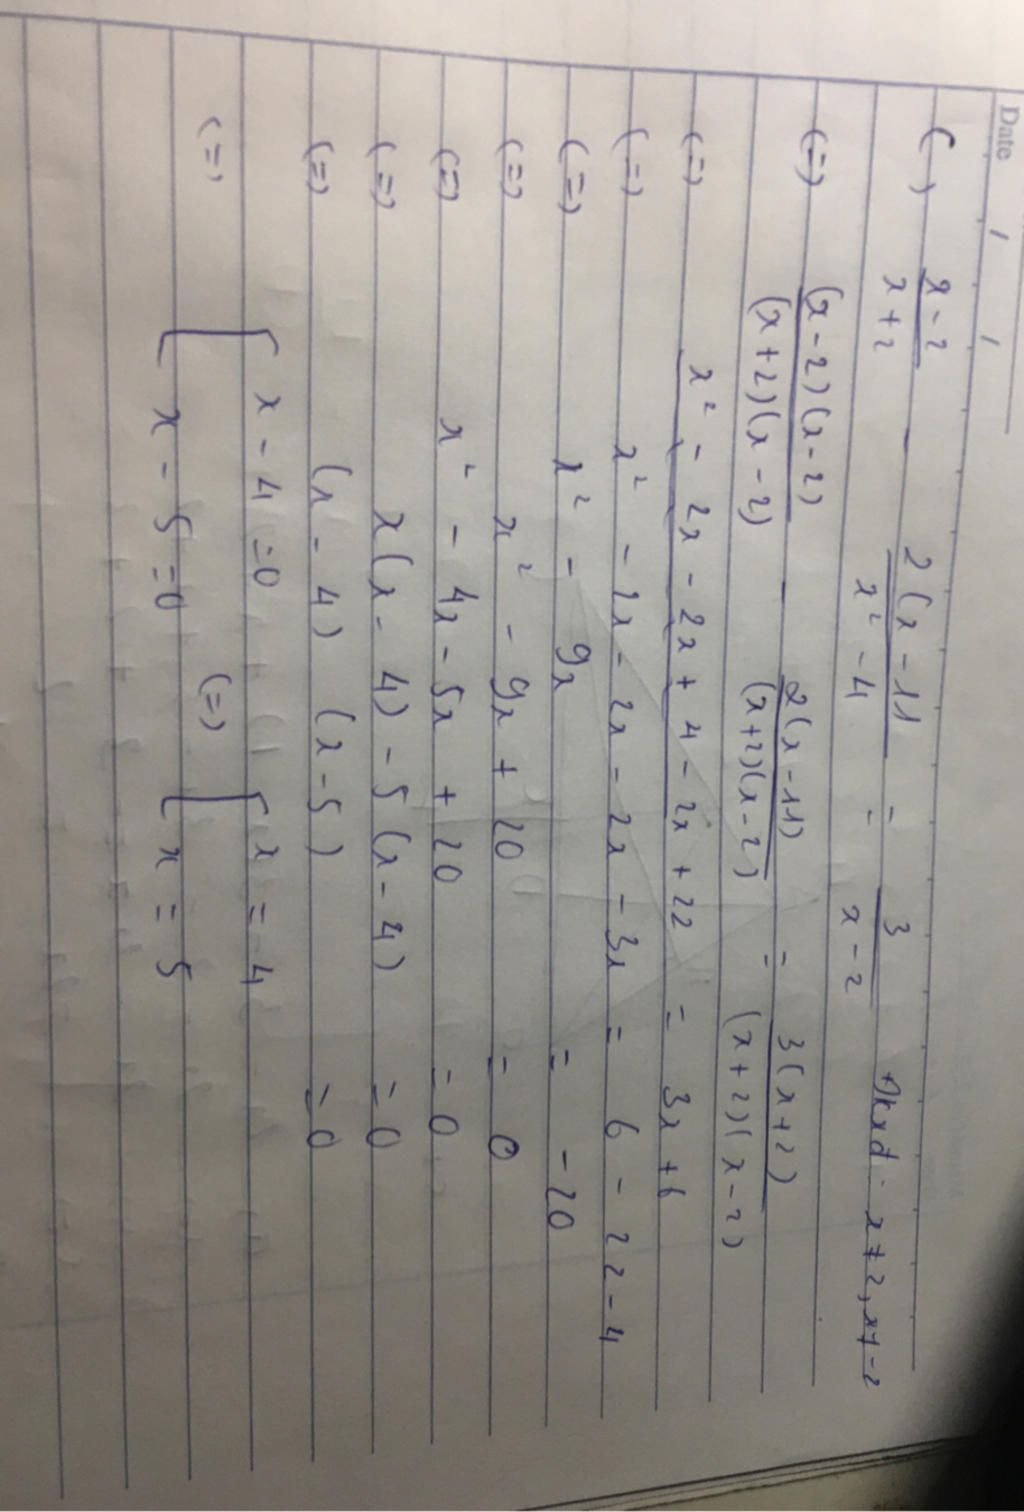 Date / /
c) \frac{x-2}{x+2} - \frac{2(x-11}{x²-4} = \frac{3}{x-2} đkxđ: x≠2, x≠-2
(=) \frac{(x-2)(x-2)}{(x+2)(x-2)} - \frac{2(x-11)}{(x+2)(x-2)} = \frac{3(x+2)}{(x+2)(x-2)}
(=) x² - 2x - 2x + 4 - 2x + 22 = 3x + 6
(=) x² - 2x - 2x - 2x - 3x = 6 - 22 - 4
(=) x² - 9x = -20
(=) x² - 9x + 20 = 0
(=) x² - 4x - 5x + 20 = 0
(=) x(x-4) - 5(x-4) = 0
(=) (x-4) (x-5) = 0
(=) [ x-4=0 (=) [ x=4
x-5=0 x=5